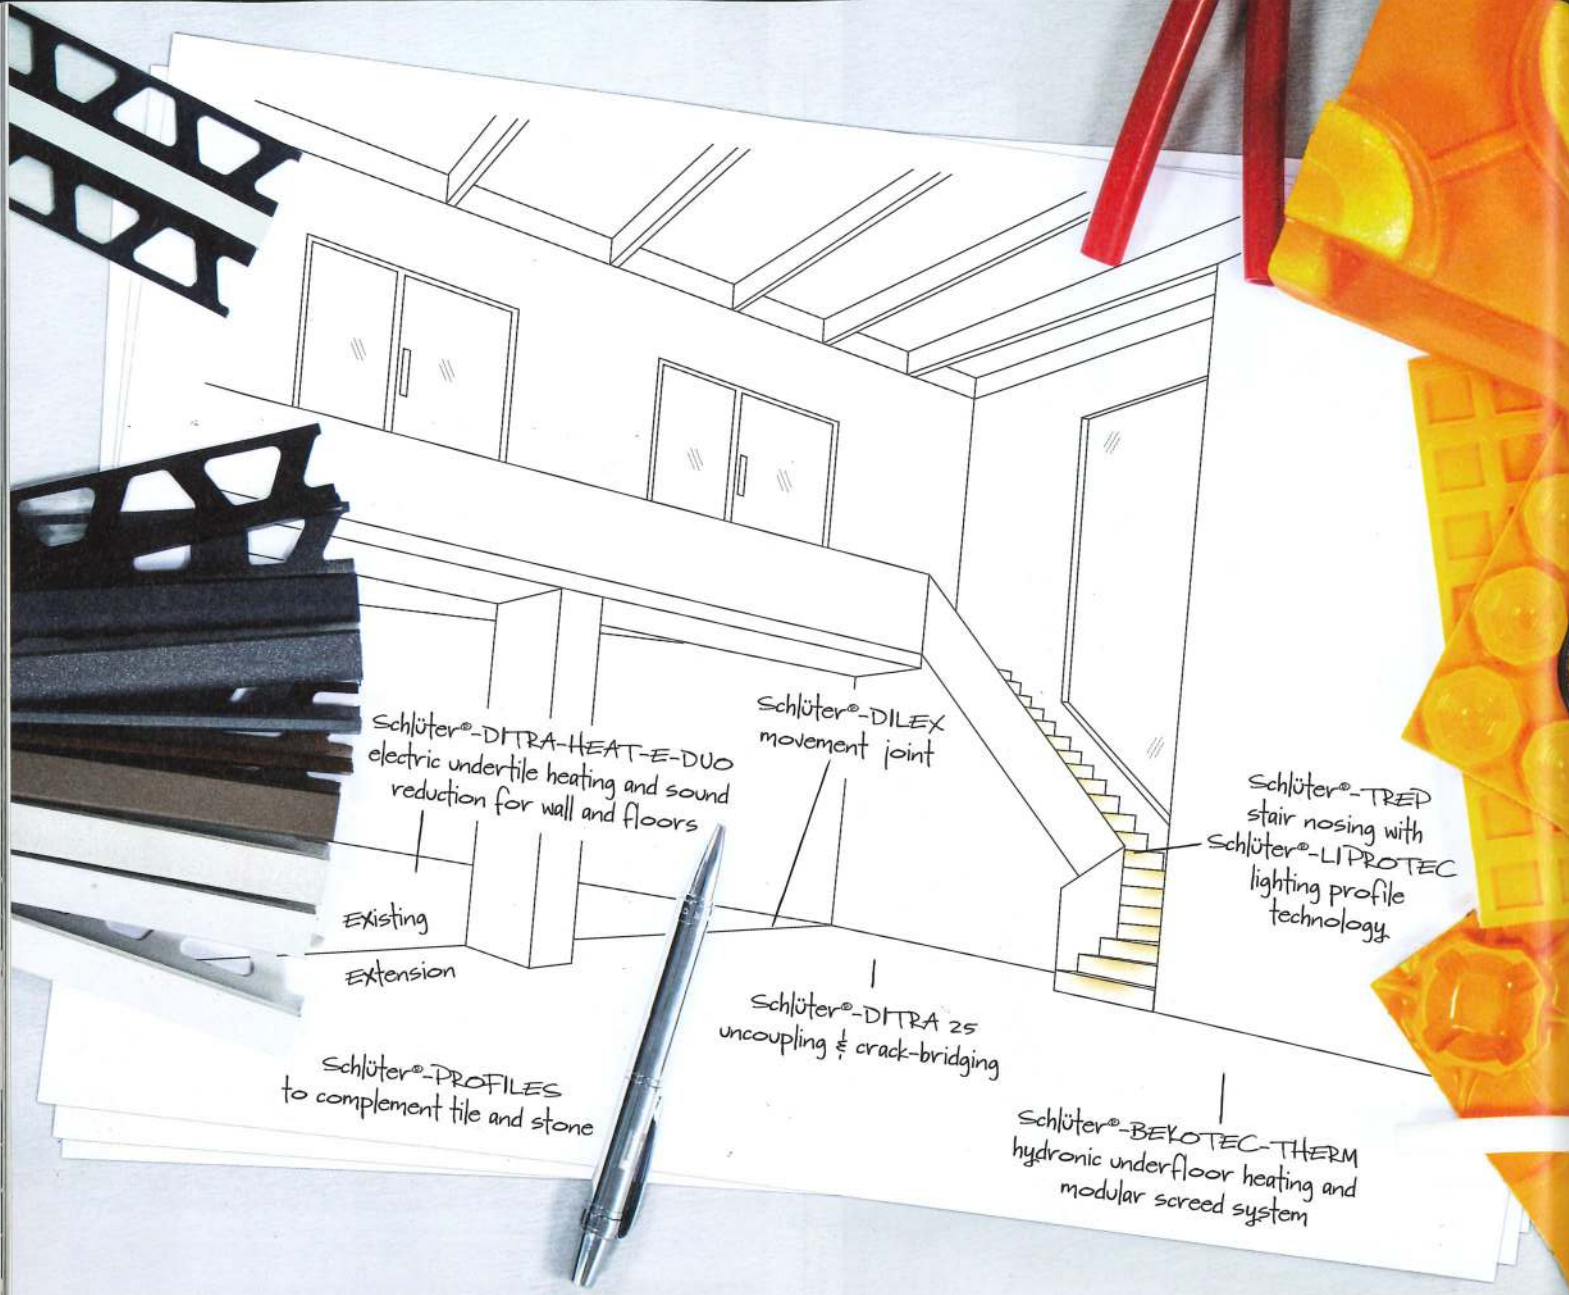 Schlüter®-DITRA-HEAT-E-DUO
electric undertile heating and sound
reduction for wall and floors
Schlüter®-DILEX
movement joint
Schlüter®-TREP
stair nosing with
Schlüter®-LIPROTEC
lighting profile
technology
Existing
Extension
Schlüter®-DITRA 25
uncoupling & crack-bridging
Schlüter®-PROFILES
to complement tile and stone
Schlüter®-BEKOTEC-THERM
hydronic underfloor heating and
modular screed system